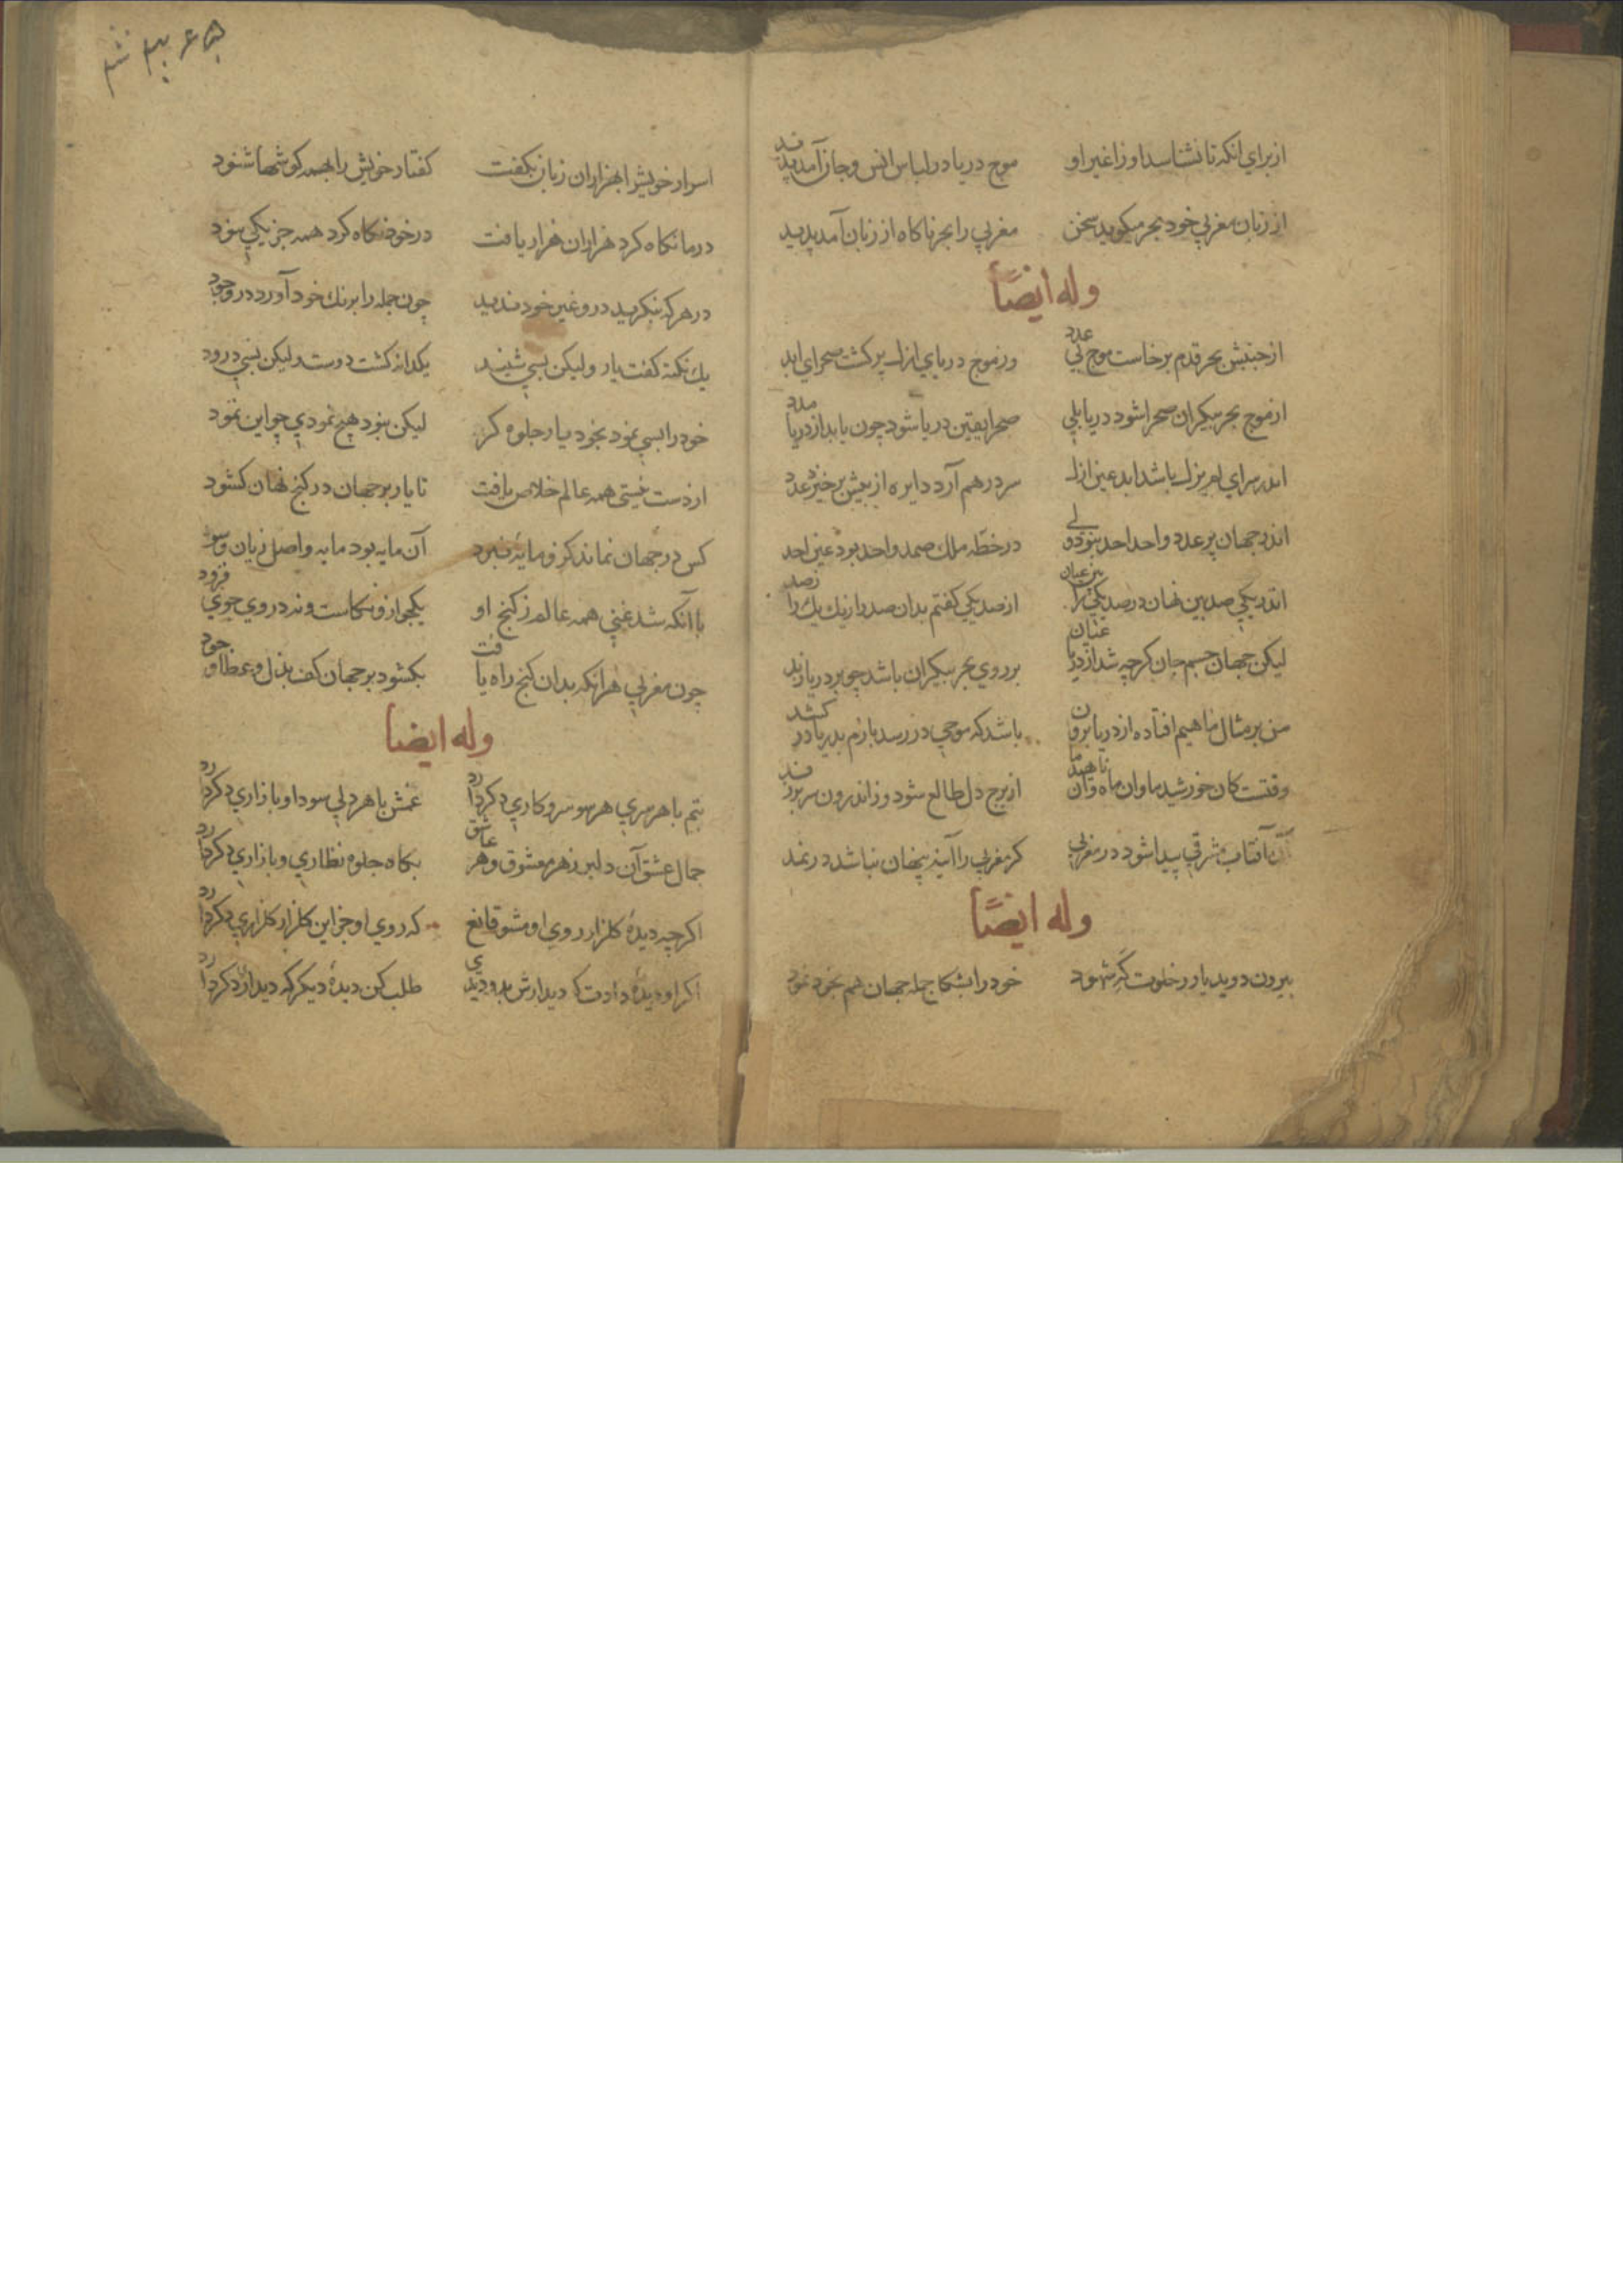 ازبراي انكه تا نشناسد اورا غير او موج دريا در لباس انس وجان آمد پديد
از زبان مغربي خود بحر ميكويد سخن مغربي را بحر ناكاه از زبان آمد پديد
وله ايضًا
از جنبش بحر قدم برخاست موج بي عدد وز موج درياي ازل پر كشت صحراي ابد
از موج بحر بيكران صحرا شود دريا بلي صحرا يقين دريا شود چون يابد از دريا مدد
اندر سراي لم يزل باشد ابد عين ازل سر درهم آرد دايره از پيش برخيزد عدد
اندر جهان پر عدد واحد احد بنود ولي در خطّه ملك صمد واحد بود عين احد
اندر يكي صد بين نهان در صد يكي را بين عيان از صد يكي كفتم بدان صد را ز يك يك را ز صد
ليكن جهان جسم جان كرچه شد از دريا عيان بر روي بحر بيكران باشد چو بر دريا زبد
من بر مثال ماهيم افتاده از دريا برون باشد كه موجي در رسد بازم بدريا در كشد
وقتست كان خورشيد ما وان ماه وان ناهيد ما از برج دل طالع شود وز اندرون سر بر زند
آن آفتاب مشرقي پيدا شود در مغربي كر مغربي را آينه پنهان نباشد در نمد
وله ايضًا
بيرون دويد يار ز خلوت كه شهود خود را بشكل جمله جهان هم بخود نمود
۵ ۶
اسرار خويش را بهزاران زبان بكفت كفتار خويش را بهمه كوشها شنود
در ما نكاه كرد هزاران هزار يافت در خود نكاه كرد همه جز يكي نبود
در هر كه بنكريد درو غير خود نديد چون جمله را برنك خود آورد در وجود
يك نكته كفت يار وليكن بسي شنيد يكدانه كشت دوست وليكن بسي درود
خود را بسي نمود بخود يار جلوه كر ليكن نبود هيچ نمودي چو اين نمود
از دست نيستي همه عالم خلاص يافت تا يار بر جهان در كنج نهان كشود
كس در جهان نماند كزو مايهٔ نبرد آن مايه بود مايه واصل زيان وسود
با آنكه شد غني همه عالم ز كنج او يكجو ازو نكاست ونه در وي جوي فزود
چون مغربي هر انكه بدان كنج راه يافت بكشود بر جهان كف بذل وعطا وجود
وله ايضا
بتم با هر سري هر سو سر وكاري دكر دارد غمش با هر دلي سودا وبازاري دكر دارد
جمال عشق آن دلبر زهر معشوق وهر عاشق بكاه جلوه نظاري وبازاري دكر دارد
اكرچه ديدهٔ كلزار روي او مشو قانع كه روي او جز اين كلزار كلزاري دكر دارد
اكر او ديدهٔ دادت كه ديدارش بدو ديدي طلب كن ديدهٔ ديكر كه ديدار دكر دارد